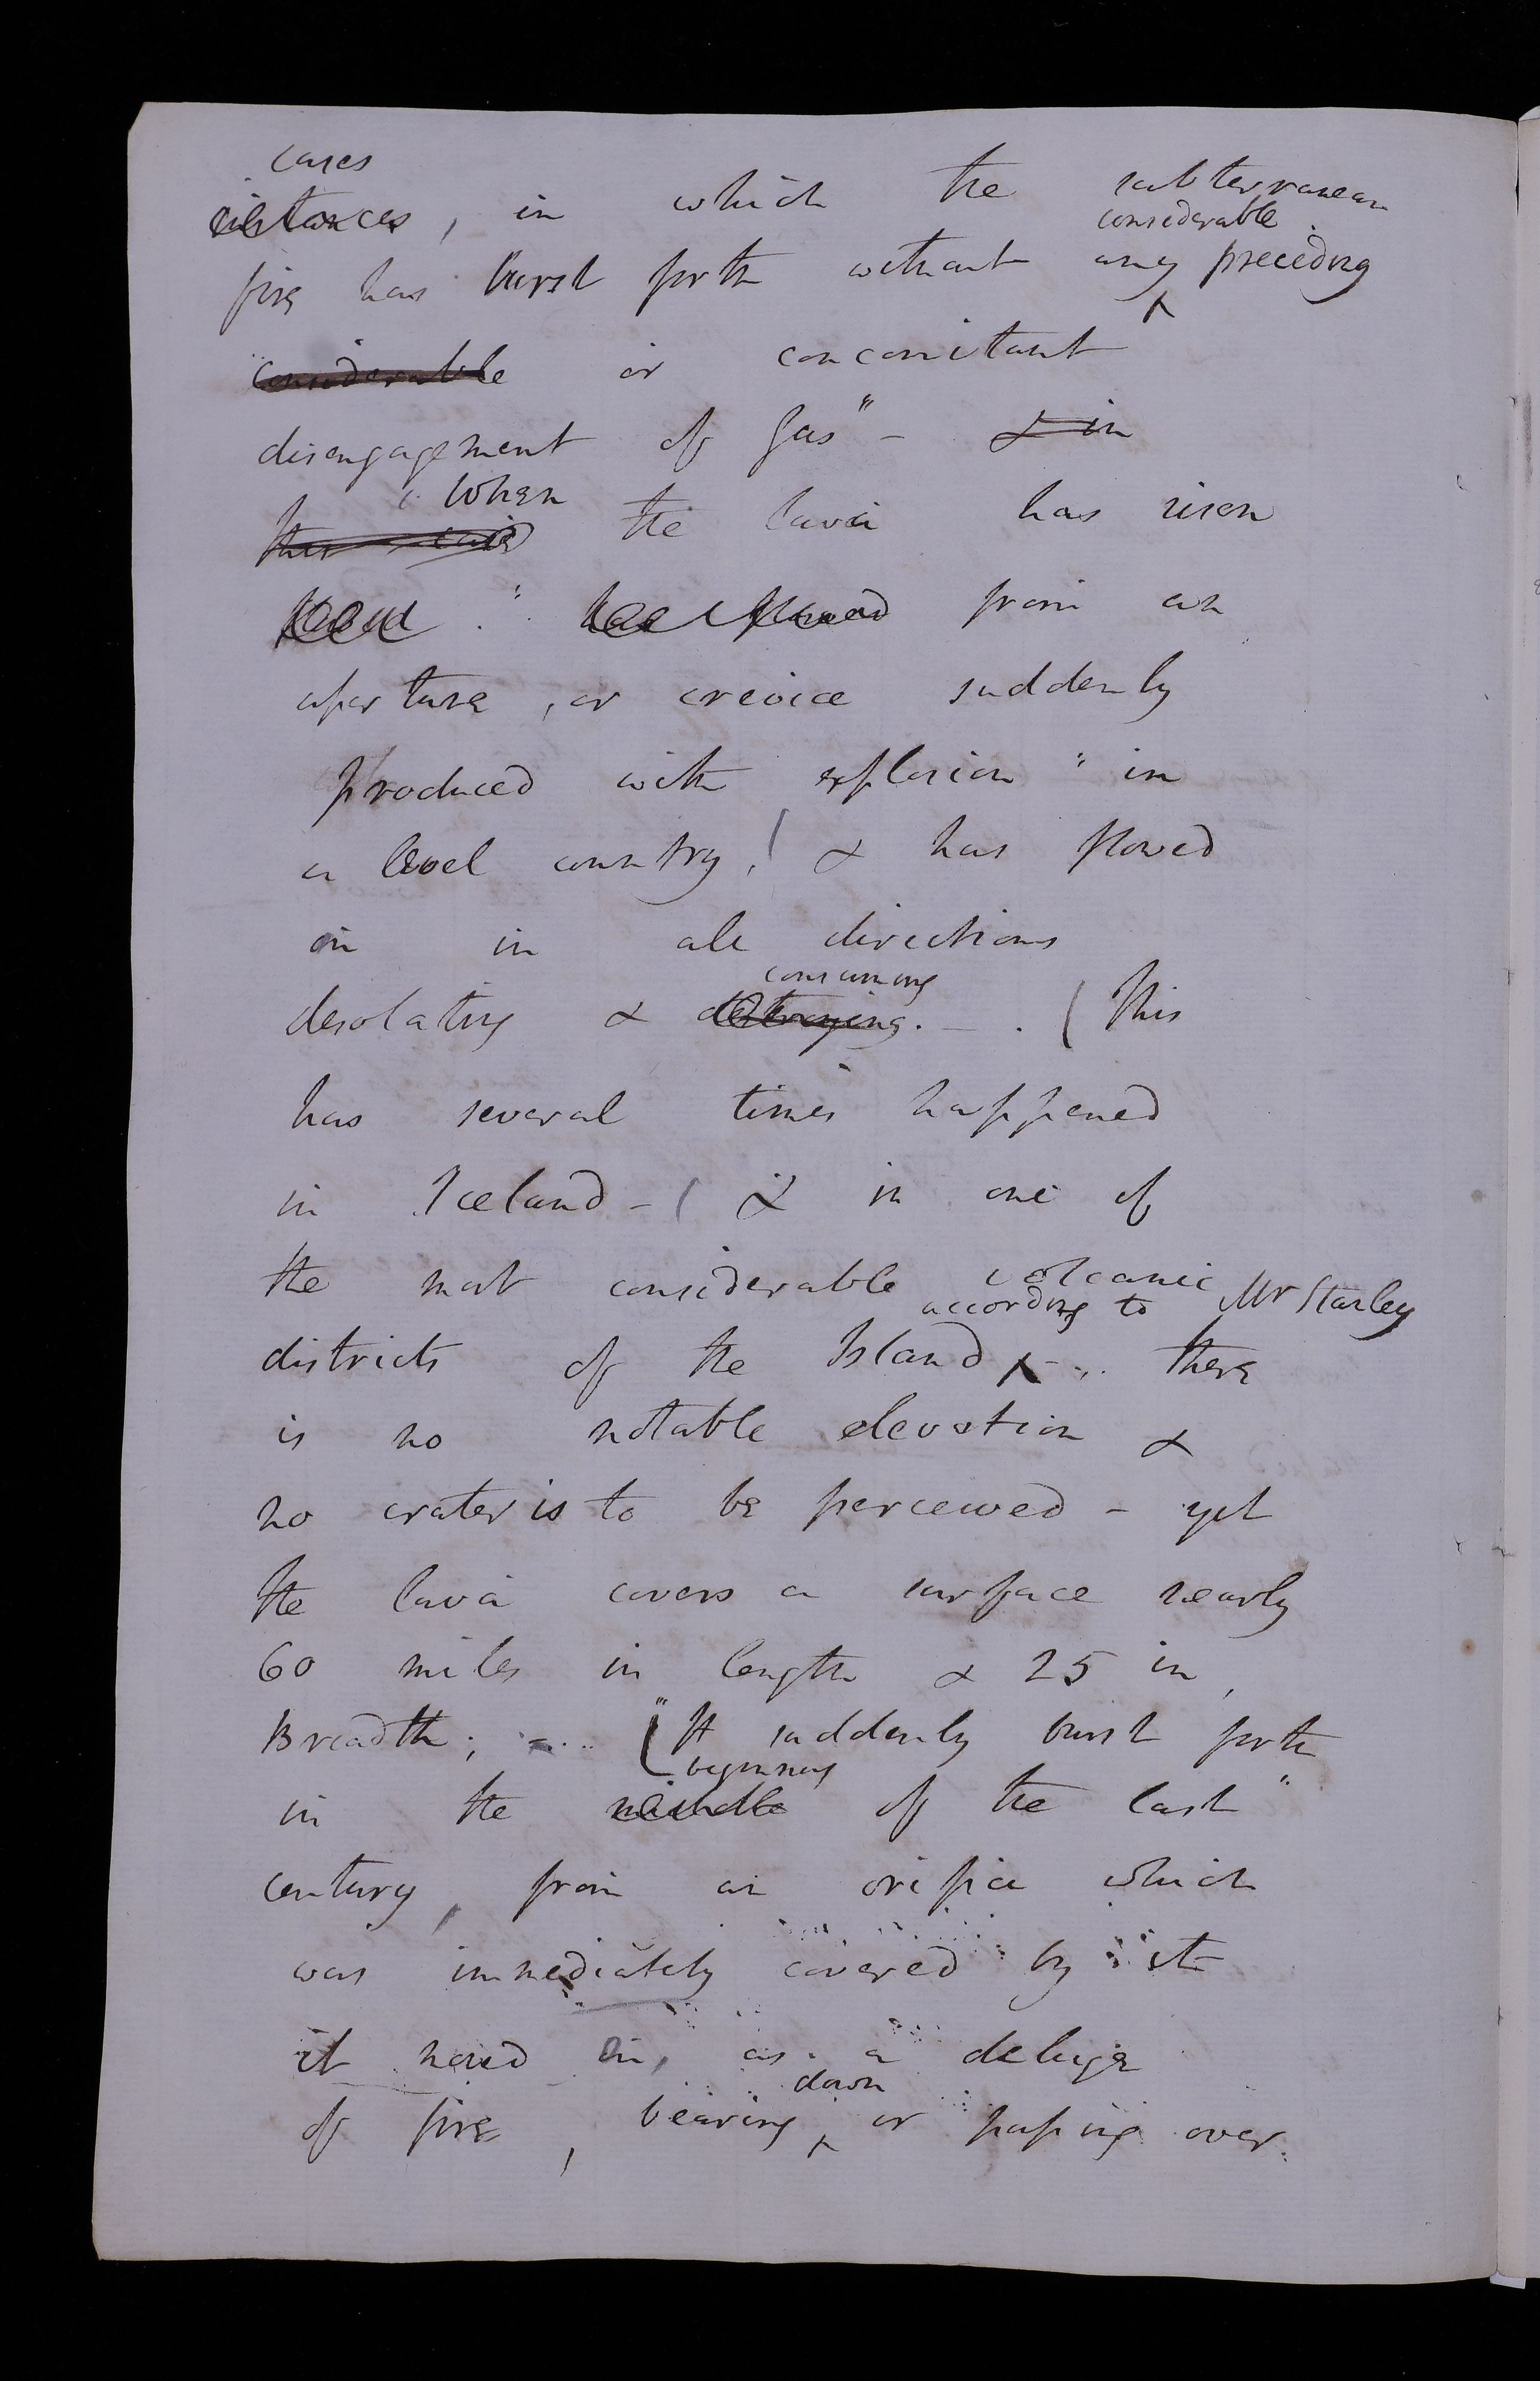 cases
instances, in which the subterranean
considerable
fire has burst forth without any preceding
considerable or concomitant
disengagement of gas" - & in
When
this case the lava has risen
has flowed from an
aperture, or crevice suddenly
produced with explosion " in
a level country, & has flowed
on in all directions
consuming
desolating & destroying. - . (This
has several times happened
in Iceland - ( & in one of
the most considerable volcanic
according to Mr Stanley
districts of the Island - .. there
is no notable elevation &
no crater is to be perceived - yet
the lava covers a surface nearly
60 miles in length & 25 in,
Breadth; - .. ("It suddenly burst forth
beginning
in the middle of the last "
century, from an orifice which
was immediately covered by it
it moved on, as a deluge
down
of fire, bearing, or passing over